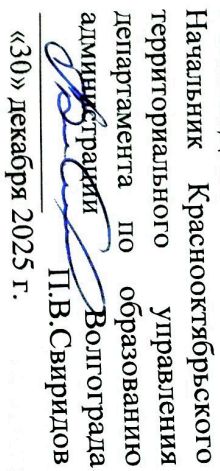 Начальник Краснооктябрьского
территориального управления
департамента по образованию
администрации Волгограда
П.В.Свиридов
«30» декабря 2025 г.